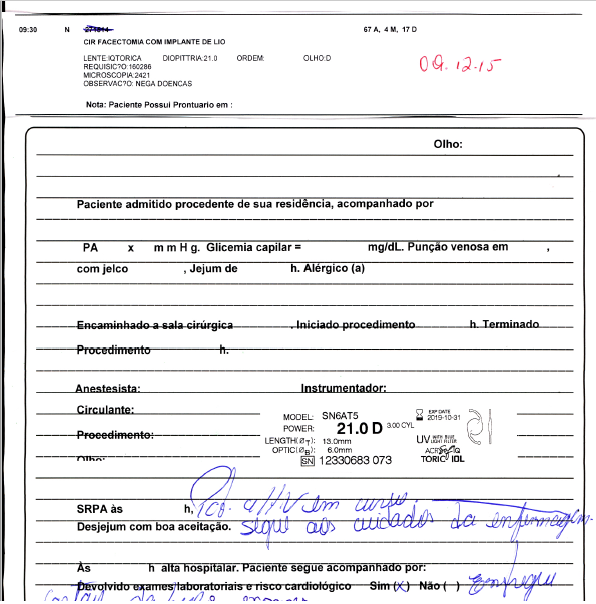 09:30 N 67 A, 4 M, 17 D
CIR FACECTOMIA COM IMPLANTE DE LIO
LENTE:IQTORICA DIOPITTRIA:21.0 ORDEM: OLHO:D
09.12.15
REQUISIC?O:160286
MICROSCOPIA:2421
OBSERVAC?O: NEGA DOENCAS
Nota: Paciente Possui Prontuario em :
Olho:
Paciente admitido procedente de sua residência, acompanhado por
PA x m m H g. Glicemia capilar = mg/dL. Punção venosa em ,
com jelco , Jejum de h. Alérgico (a)
Encaminhado a sala cirúrgica . Iniciado procedimento h. Terminado
Procedimento h.
Anestesista: Instrumentador:
Circulante:
Procedimento:
Olho:
MODEL: SN6AT5
POWER: 21.0 D 3.00 CYL
LENGTH(ØT): 13.0mm
OPTIC(ØB): 6.0mm
SN 12330683 073
EXP DATE
2019-10-31
UV WITH BLUE LIGHT FILTER
TORIC IOL
SRPA às h, Pct. c/ HV em curso.
Desjejum com boa aceitação. segue aos cuidados da enfermagem.
Às h alta hospitalar. Paciente segue acompanhado por:
Devolvido exames laboratoriais e risco cardiológico Sim (X) Não ( ) Entregue